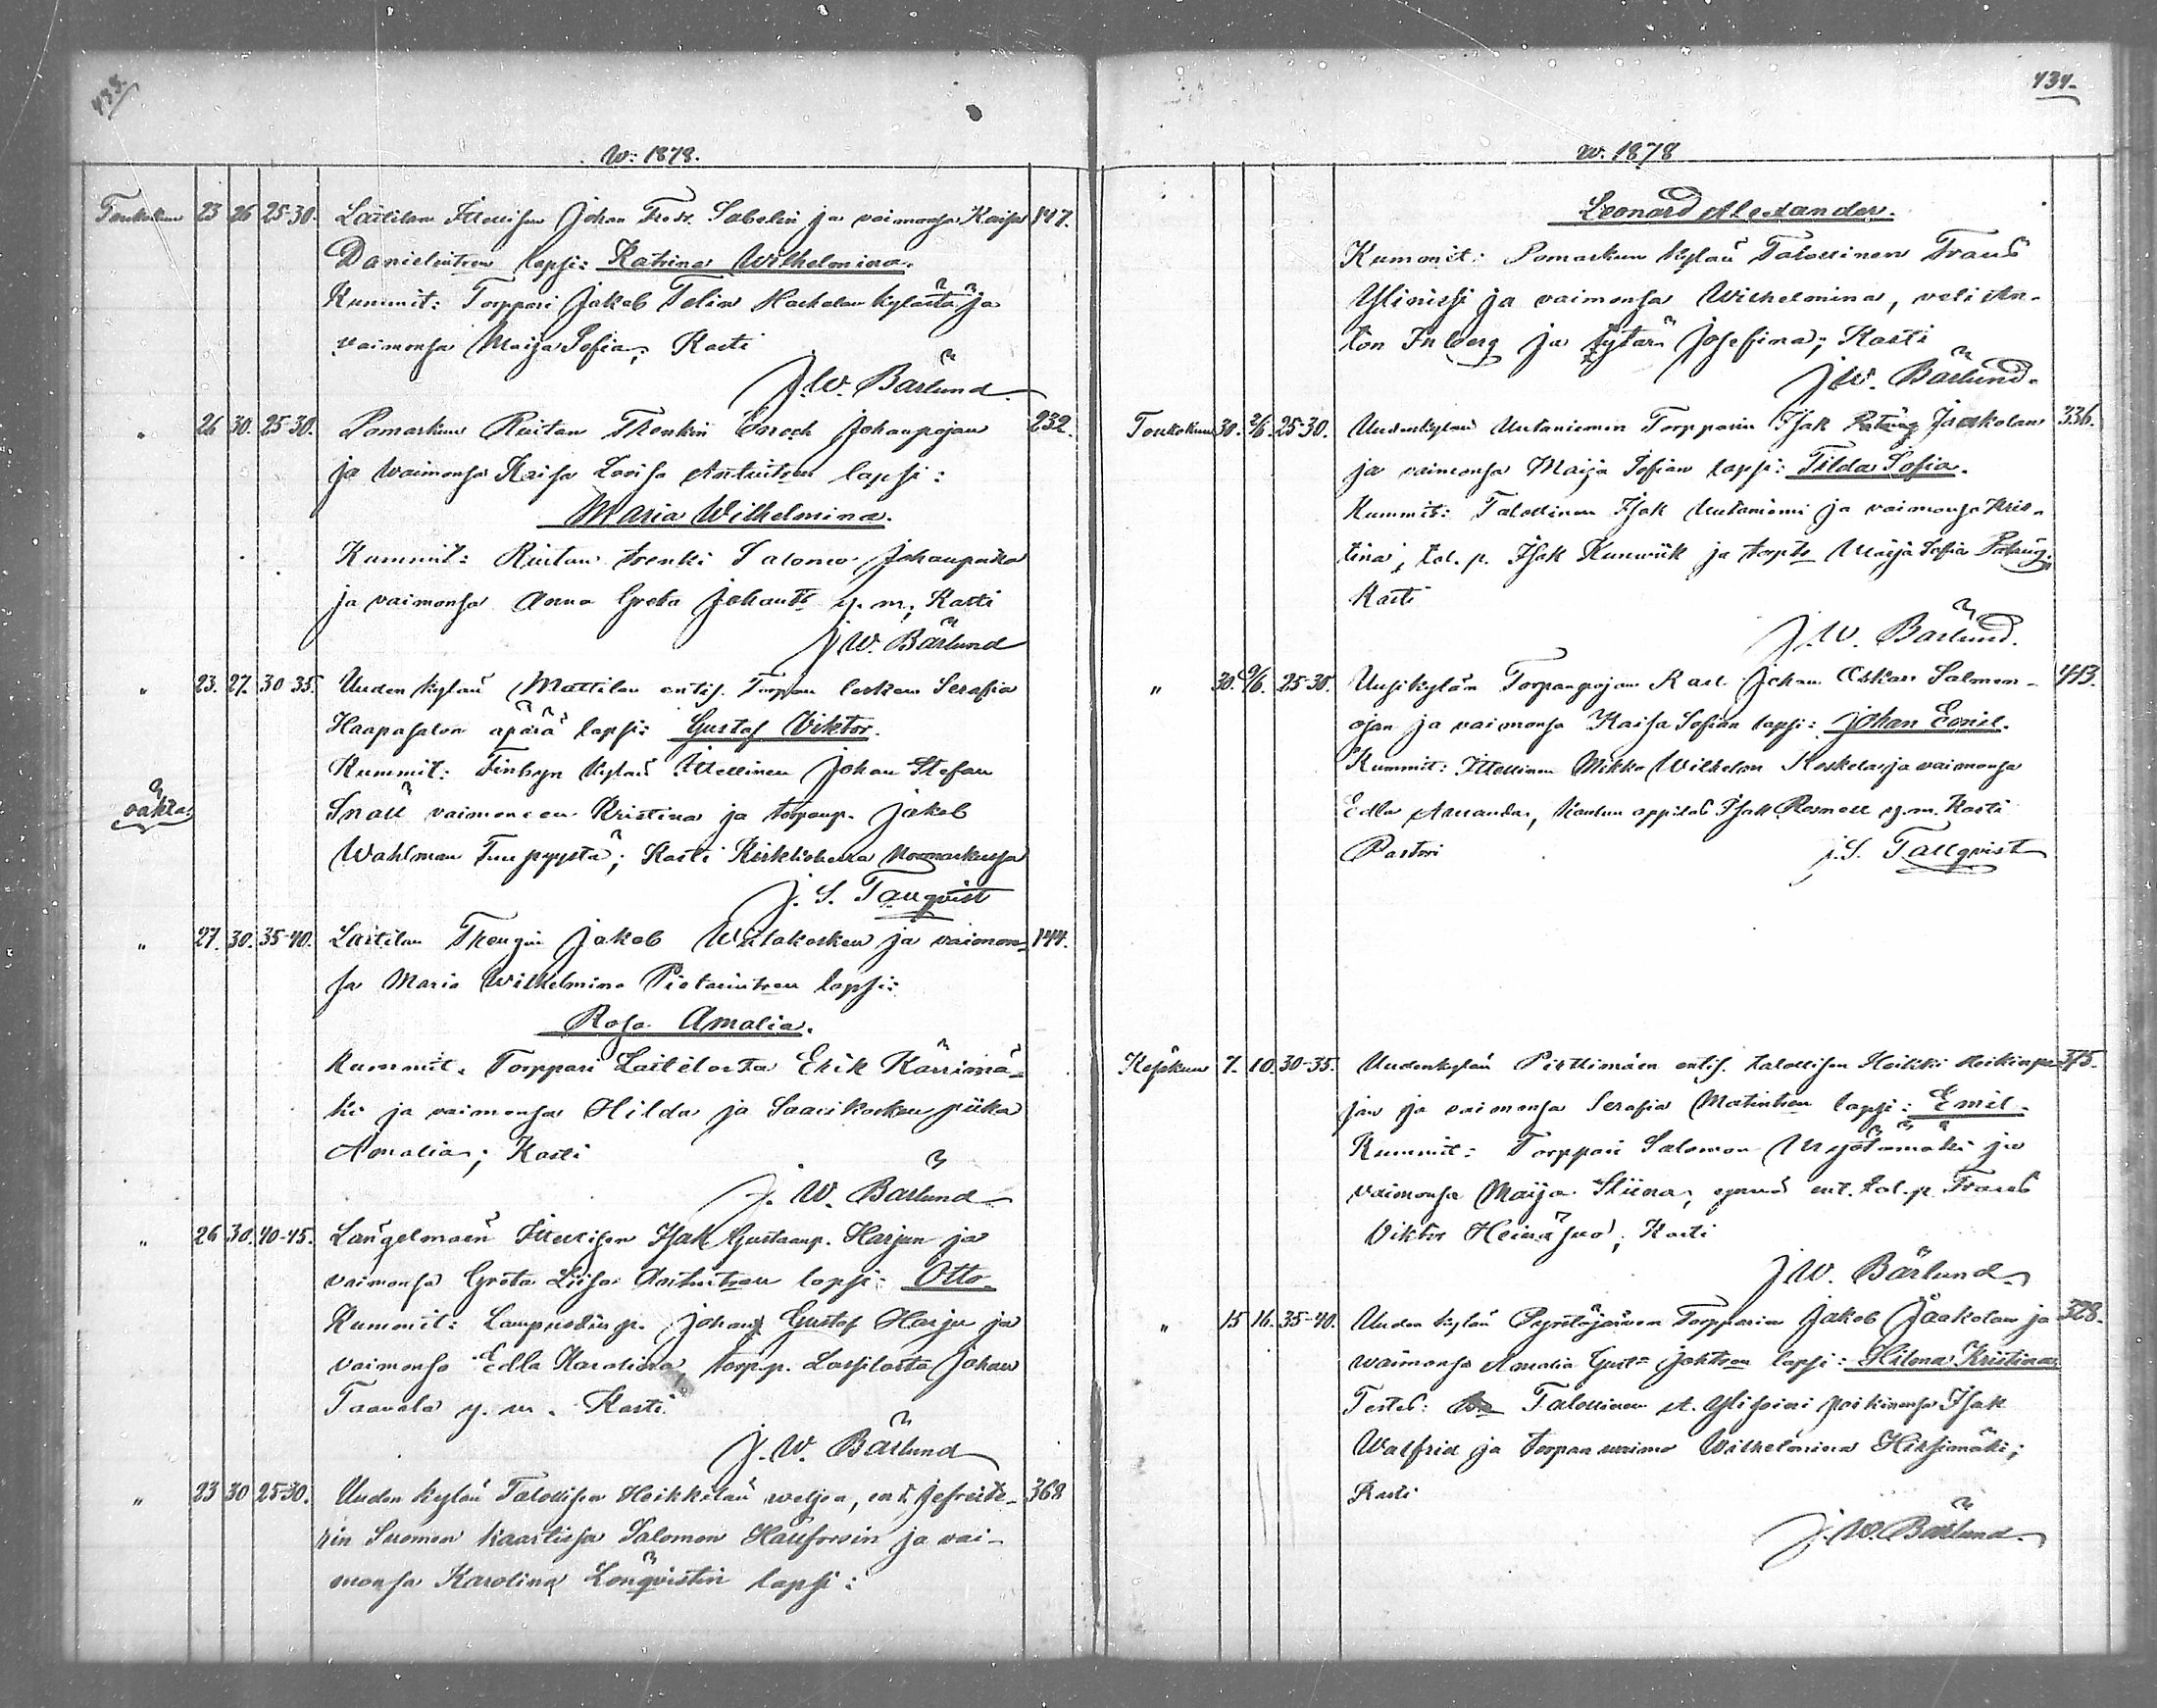 433.
w. 1878.
Toukokuu 23 26 25-30. Laitilan Itsellisen Johan Fredr. Sabelin ja vaimonsa Kaisa 147.
Danielintren lapsi: Katrina Wilhelmina.
Kummit: Torppari Jakob Telin kylästä ja
vaimonsa Maija Sofia; Kasti
J. W. Bärlund
" 26 30. 25-30. Pomarkun Ruitan Thenkin Enoch Johanpojan 232.
ja waimonsa Kaisa Lovisa Antintren lapsi:
Maria Wilhelmina.
Kummit: Ruitan trenki Salomo Johanpoika
ja vaimonsa Anna Greta Johantr y. m; Kasti
J. W. Bärlund
" 23. 27. 30-35. Uuden kylän Mattilan entis. Torpan lesken Serafia
Haapasalon äpärä lapsi: Gustaf Viktor.
Kummit: Finbyn kylän Itsellinen Johan Stefan
vahta: Snäll vaimoneen Kristina ja torpanp. Jakob
Wahlman ; Kasti Kirkkoherra Norrmarkussa
J. S. Tallqvist
" 27. 30. 35-40. Laitilan Thengin Jakob Wiitakosken ja vaimon- 144.
sa Maria Wilhelmina lapsi:
Rosa Amalia.
Kummit. Torppari Laitilasta Erik Kärrimä-
ki ja vaimonsa Hilda ja Saarikosken piika
Amalia; Kasti
J. W. Bärlund
" 26 30. 40-45. Längelmäen Itsellisen Isak Gustaanp. Harjun ja
vaimonsa Greta Liisa Antintren lapsi: Otto.
Kummit: Johan Gustaf Harju ja
vaimonsa Edla Karolina, torp.p. Lassilasta Johan
Taavala y. m. Kasti
J. W. Bärlund
" 23 30 25-30. Uuden kylän Talollisen Heikkilän weljen, ent. Jefreite- 368
rin Suomen kaartissa Salomon Hällforsin ja vai-
monsa Karolina Lönqvistin lapsi:
434.
w. 1878
Leonard Alexander.
Kummit: Pomarkun kylän Talollinen Frans
Ylinissi ja vaimonsa Wilhelmina, veli An-
ton Inberg ja tytär Josefina; Kasti
J. W. Bärlund.
Toukokuu 30. 2/6. 25-30. Uudenkylän Uutaniemen Torpparin Isak Jaakolan 336.
ja vaimonsa Maija Sofian lapsi: Tilda Sofia.
Kummit: Talollinen Isak Uutaniemi ja vaimonsa Kris-
tina; tal. p. Isak ja torp.tr Maija Sofia
Kasti
J. W. Bärlund.
" 30. 9/6. 25-30. Uusikylän Torpanpojan Karl Johan Oskari Salmen- 413.
ojan ja vaimonsa Kaisa Sofian lapsi: Johan Emil.
Kummit: Itsellinen Mikko Wilhelm Koskela ja vaimonsa
Edla Amanda, Koulun oppilas Isak Rosnell y. m. Kasti
Pastori J. S. Tallqvist
Kesäkuu 7. 10. 30-35. Uudenkylän Pirttimäen entis. talollisen Heikki Heikinpo- 375.
jan ja vaimonsa Serafia Matintren lapsi: Emil.
Kummit: Torppari Salomon Myötämäki ja
vaimonsa Maija Stiina, ynnä ent. tal. p. Frans
Viktor Heinäsuo; Kasti
J. W. Bärlund.
" 15 16. 35-40. Uuden kylän Pyröläjärven Torpparin Jakob Jaakolan ja 328.
waimonsa Amalia Gust= Johtren lapsi: Hilma Kristina
Testes: Talollinen A. poikinensa Isak
Walfrid ja torpan waimo Wilhelmina Hirsimäki;
Kasti
J. W. Bärlund.